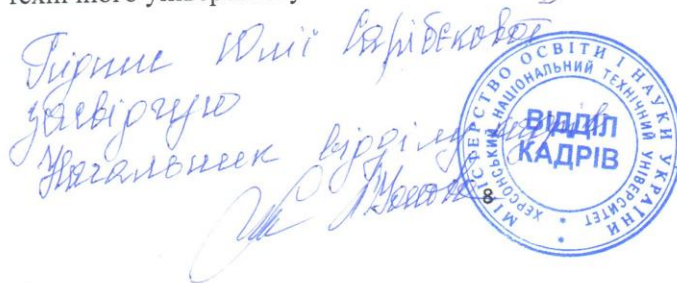 технічного університету
Підпис Юлії Сарібєкової
засвідчую
Начальник відділу кадрів
8
МІНІСТЕРСТВО ОСВІТИ І НАУКИ УКРАЇНИ
ХЕРСОНСЬКИЙ НАЦІОНАЛЬНИЙ ТЕХНІЧНИЙ УНІВЕРСИТЕТ
ВІДДІЛ
КАДРІВ